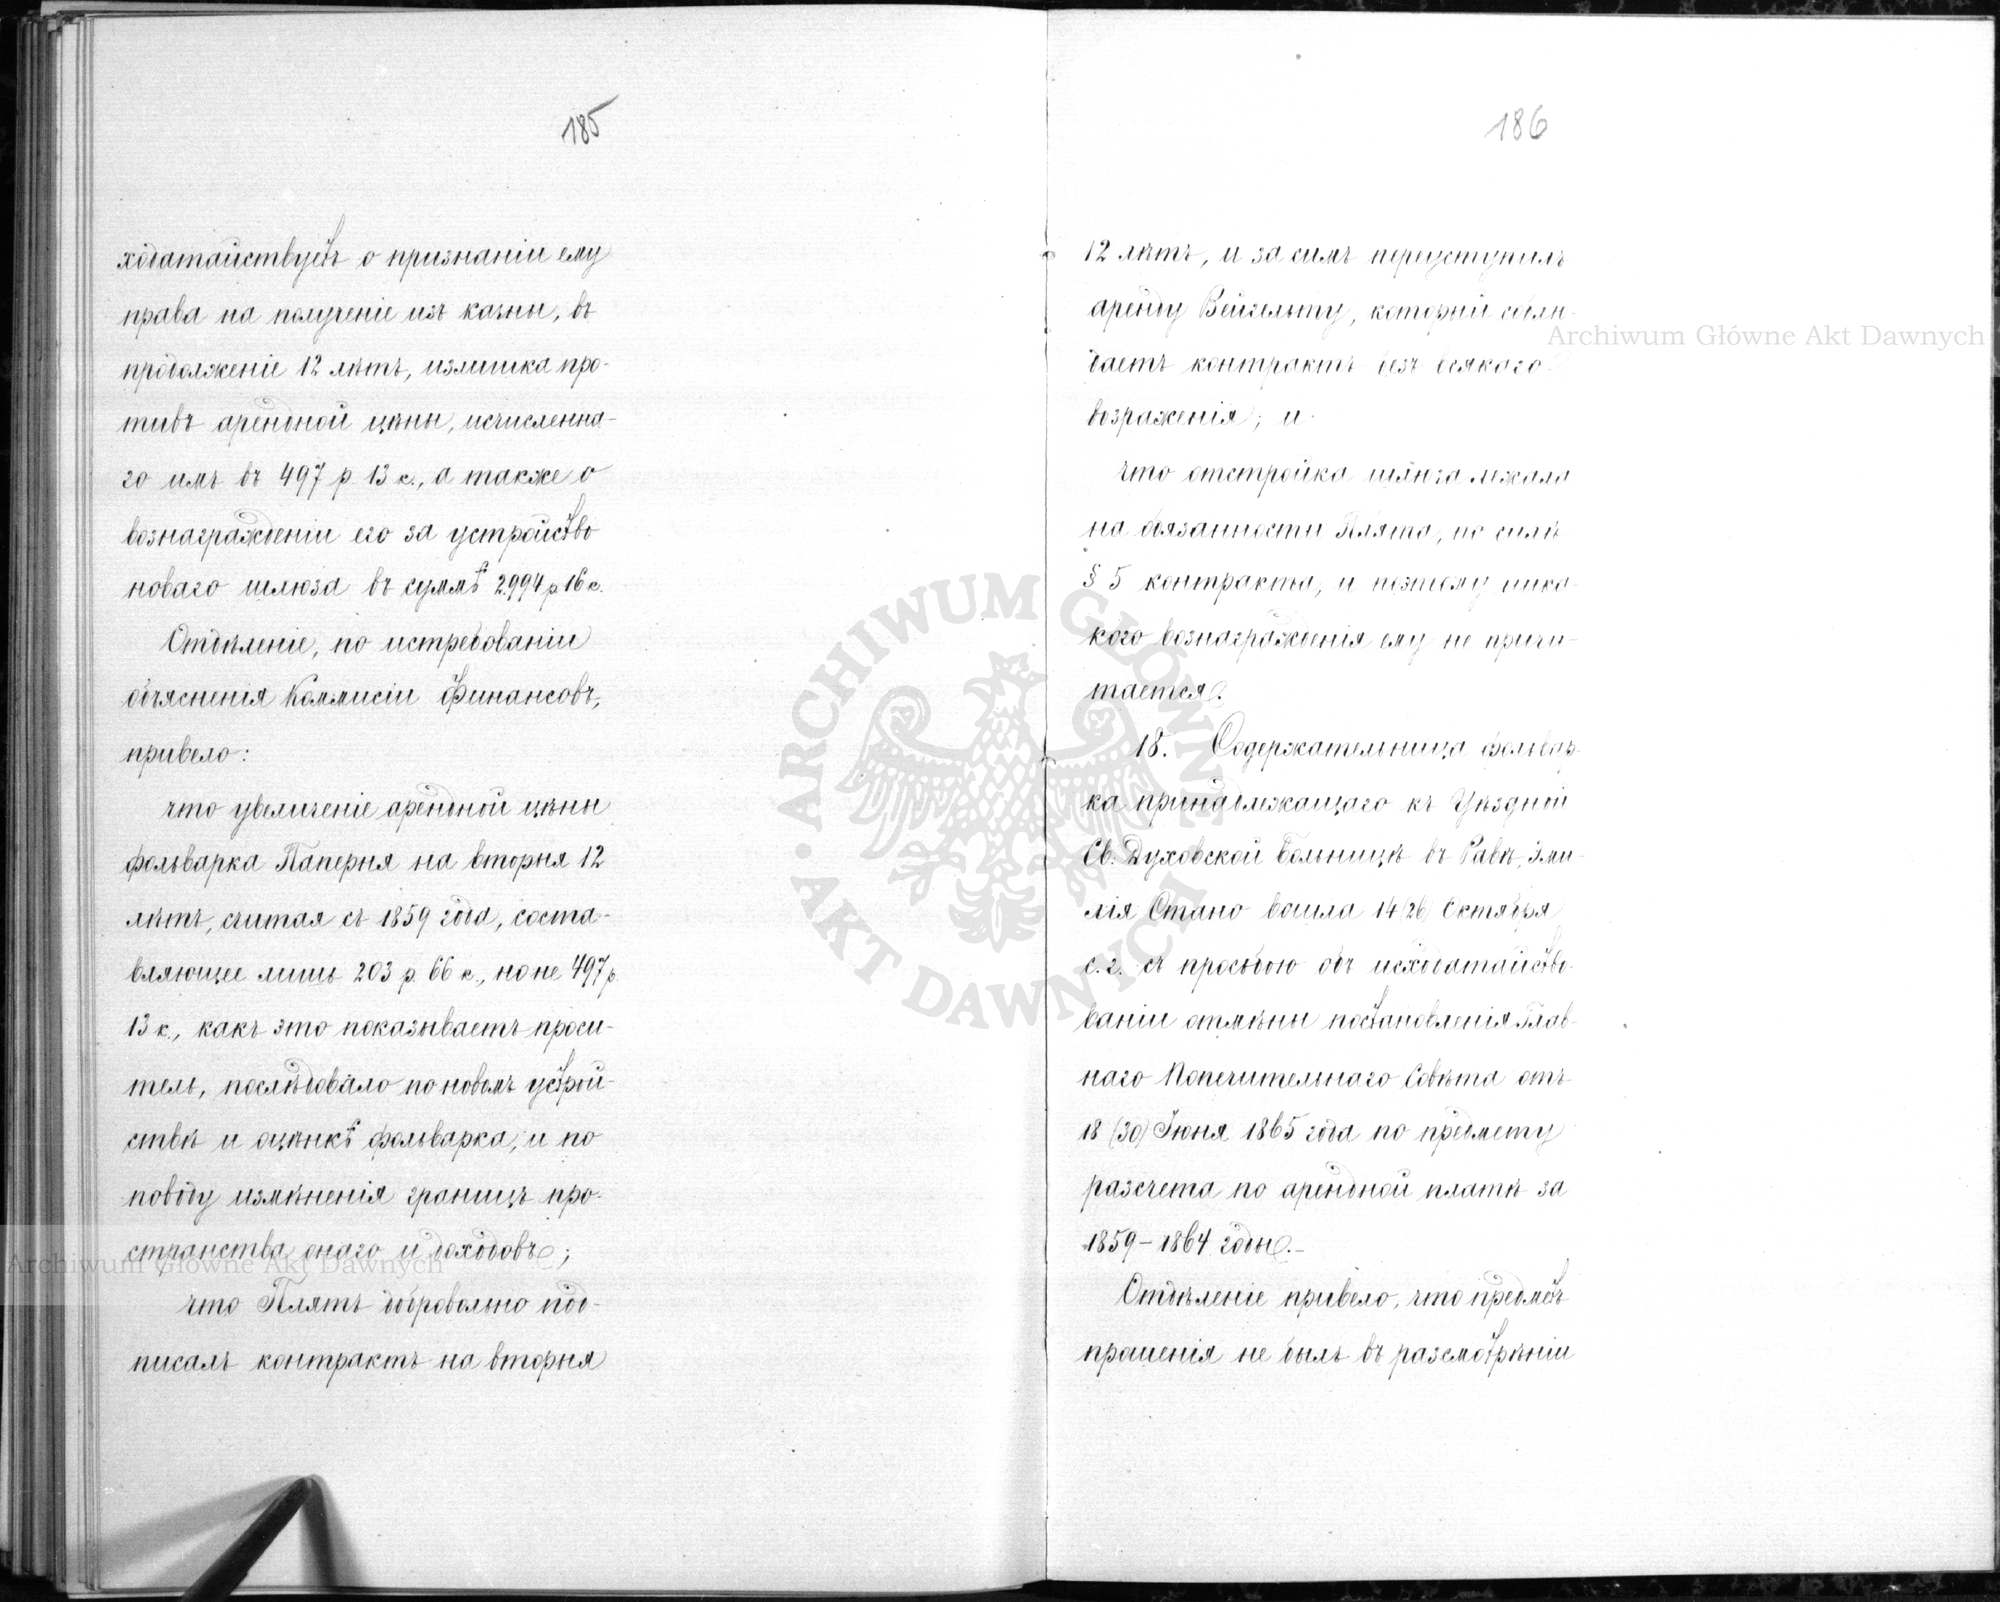 185
ходатайствуетъ о признаніи ему
права на полученіе изъ казны, въ
продолженіе 12 лѣтъ, излишка про-
тивъ арендной цѣны, исчисленна-
го имъ въ 497 р 13 к., а также о
вознагражденіи его за устройство
новаго шлюза въ суммѣ 2994 р 16 к.
Отдѣленіе, по истребованіи
объясненія Коммисіи Финансовъ,
привело:
что увеличеніе арендной цѣны
фольварка Паперня на вторыя 12
лѣтъ, считая съ 1859 года, соста-
вляющее лишь 203 р. 66 к., но не 497 р.
13 к., какъ это показываетъ проси-
тель, послѣдовало по новомъ устрой-
ствѣ и оцѣнкѣ фольварка, и по
поводу измѣненія границъ про-
странства онаго и доходовъ;
что Плятъ добровольно под-
писалъ контрактъ на вторыя
186
12 лѣтъ, и за симъ переуступилъ
аренду Вейгельту, который соблю-
даетъ контрактъ безъ всякаго
возраженія; и
что отстройка шлюза лежала
на обязанности Плята, по силѣ
§ 5 контракта, и поэтому ника-
кого вознагражденія ему не причи-
тается.
18. Содержательница фольвар-
ка принадлежащаго къ Уѣздной
Св. Духовской Больницѣ въ Равѣ, Эми-
лія Стано вошла 14 (26) Октября
с. г. съ просьбою объ исходатайство-
ваніи отмѣны постановленія Глав-
наго Попечительнаго Совѣта отъ
18 (30) Іюня 1865 года по предмету
разсчета по арендной платѣ за
1859-1864 годы.-
Отдѣленіе привело, что предметъ
прошенія не былъ въ разсмотрѣніи
Archiwum Główne Akt Dawnych
Archiwum Główne Akt Dawnych
ARCHIWUM GŁÓWNE
AKT DAWNYCH